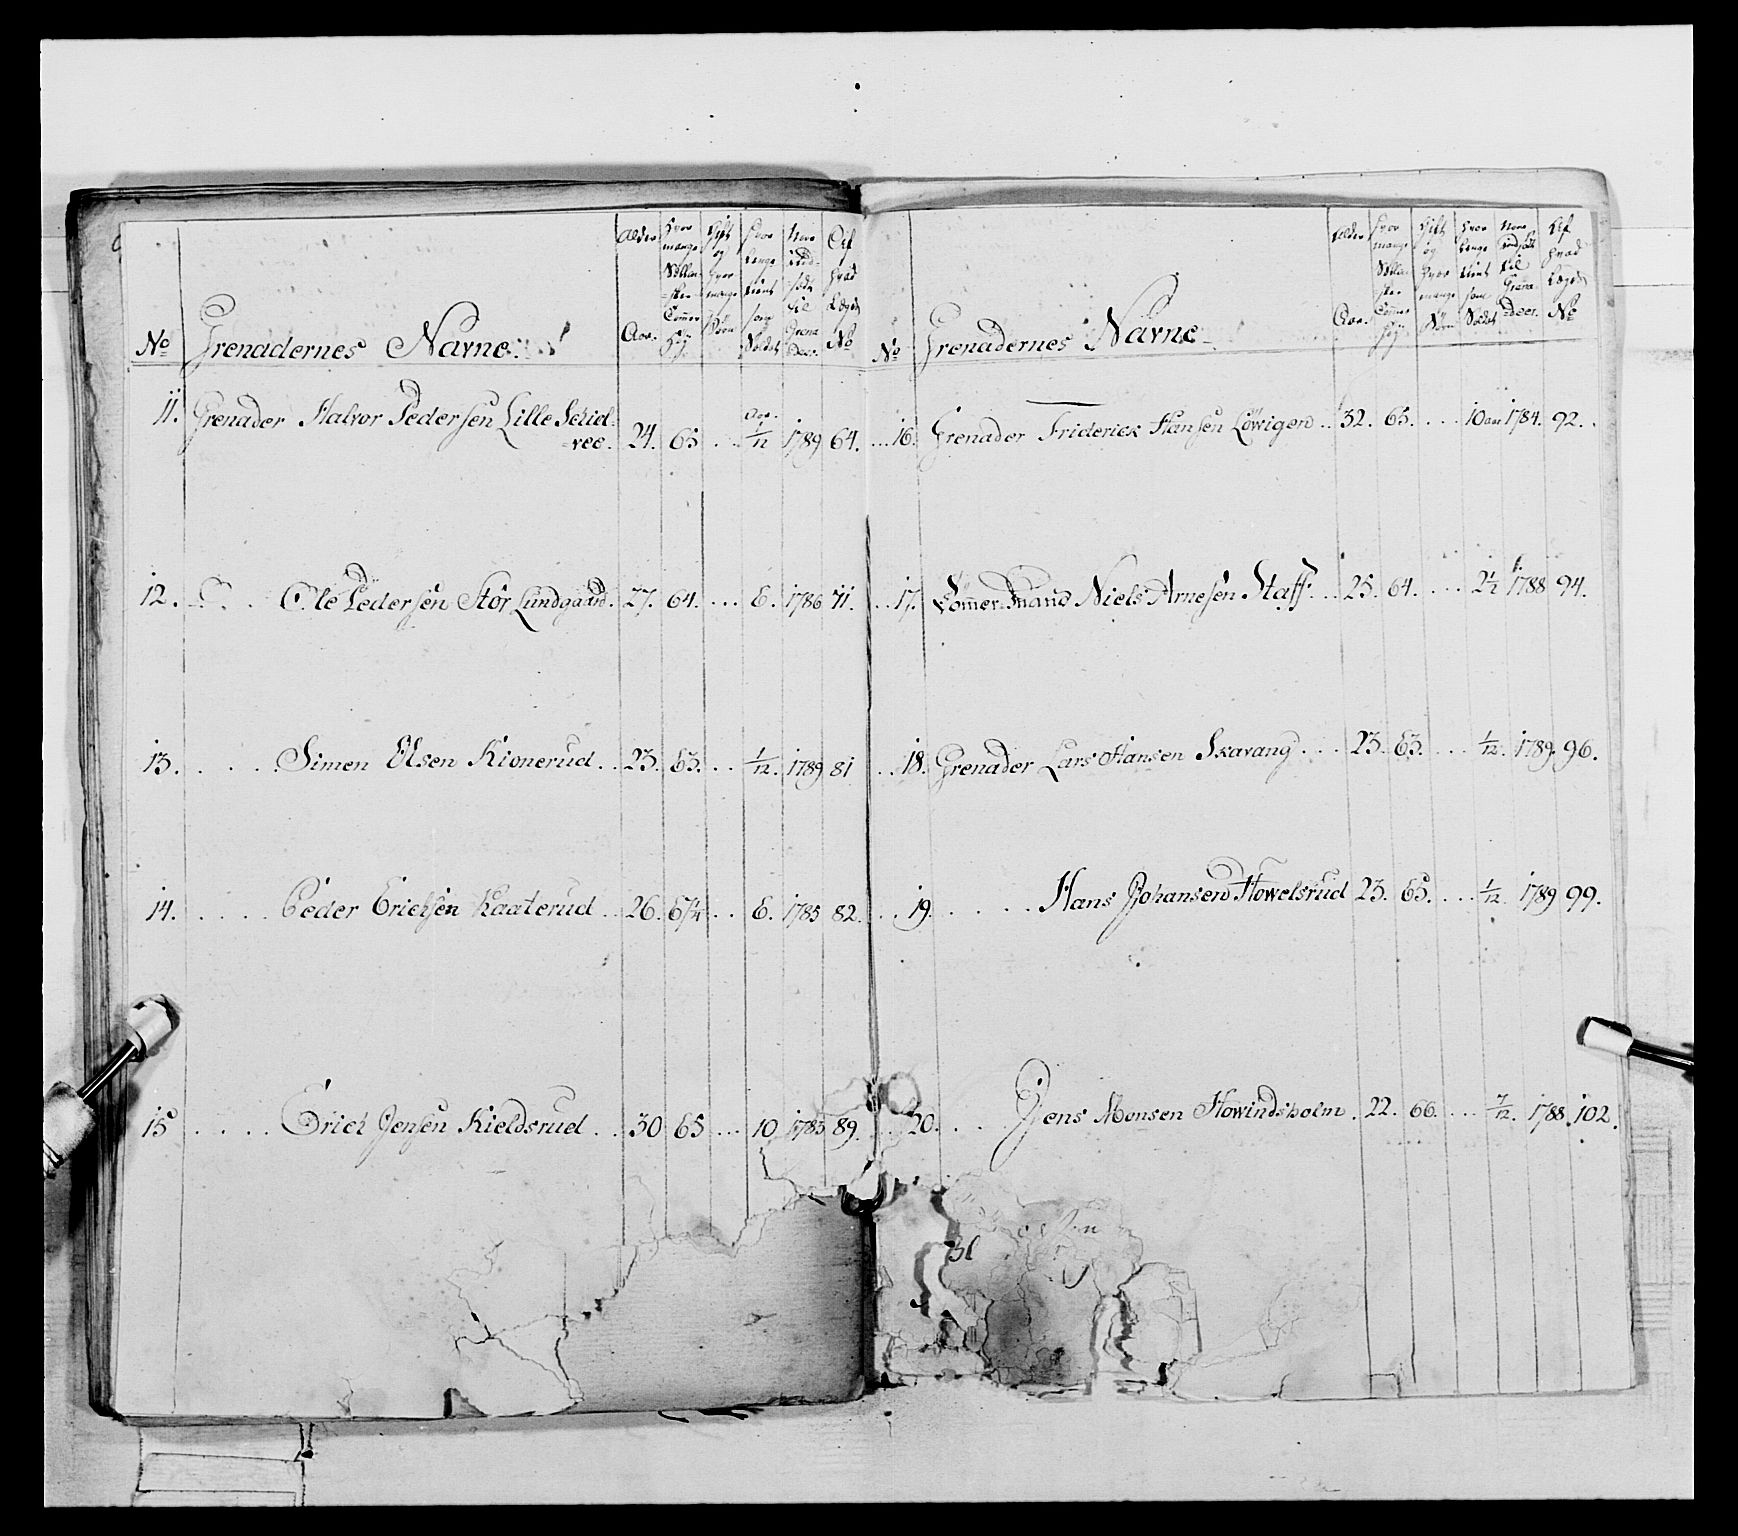 No
Grenadernes Navne
Alder Aar.
Hvor mange Sællan= =ske Tommer Høy.
Gift og Hvor mange Børn
Hvor Lenge tient som Soldat
Naar Ud= =satt til Grena Deer.
Af Hvad Lægd No
11. Grenader Halvor Pedersen Lille Schiel=
=vee. 24. 65 ... Aar. 1/12 1789 64.
12. D. . Ole Pedersen Stor Lundgaard. 27. 64. ... 6. 1786 71.
13. . . . . Simen Olsen Kionerud . . 23. 63. . . 1/12. 1789 81
14. . . . . Peder Erichsen Kaaterud . . 26. 67/4 . . 6. 1785 82.
15 . . . . Erich Jensen Kieldsrud . . 30 65 ... 10 1785 89.
No
Grenadernes Navne
Alder Aar.
Hvor mange Sællan ske Tommer Høy.
Gift og Hvor mange Børn
Hvor Lenge tient som Soldat
Naar Udsatt til Grena Deer.
Af Hvad Lægd No
16. Grenader Friderick Hansen Löwigen .. 32. 65. . . . 10 aar 1784. 92. .
17. Tömmer Mand Niels Arnesen Staff . . 25. 64. . . . 2 1/2 1788 94.
18. Grenader Lars Hansen Skavang . . . 23. 63. . . . 1/12. 1789. 96.
19. . . . . . Hans Johansen Howelsrud 23. 65. . . . 1/12. 1789 99.
20. . . . Jens Monsen Howindsholm . 22. 66. . . . 7/12. 1788. 102.